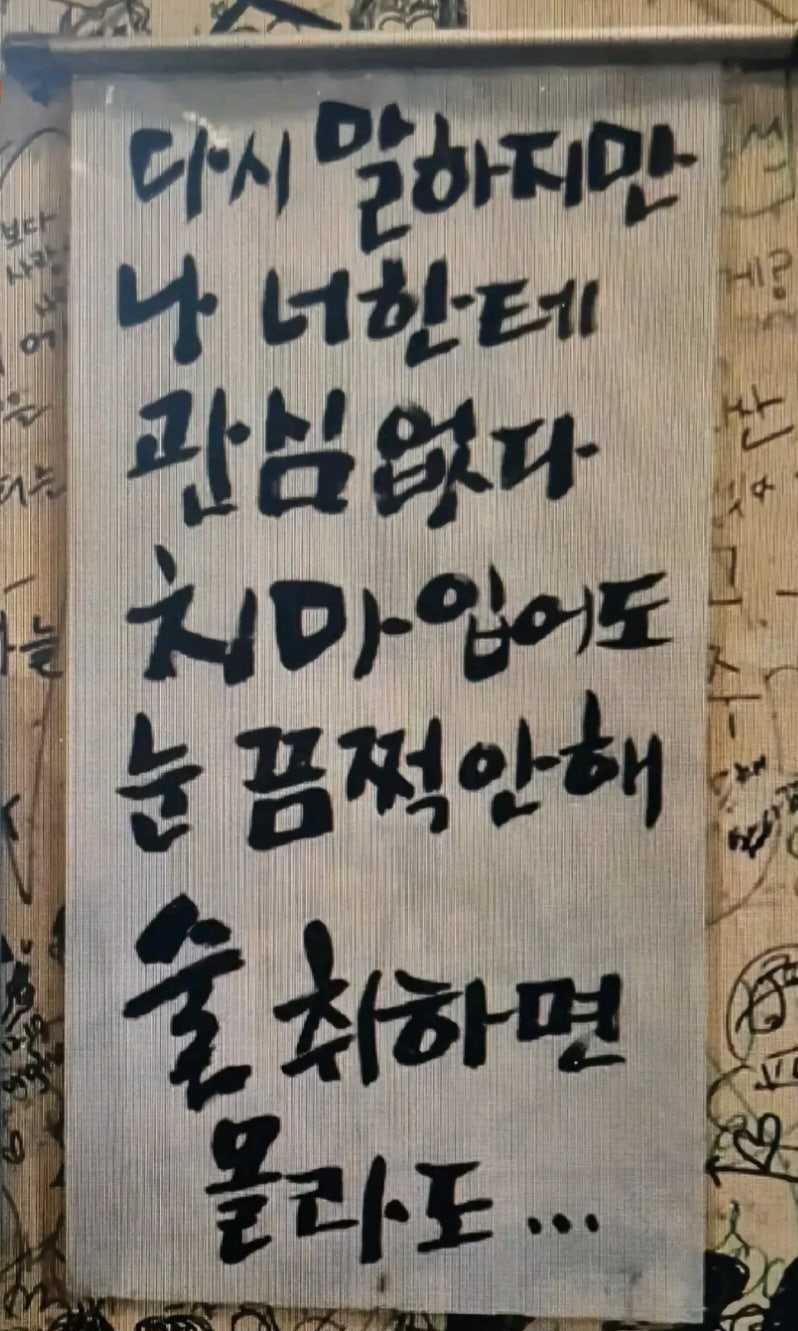 다시 말하지만
나 너한테
관심 없다
치마 입어도
눈 끔쩍 안해
술 취하면
몰라도...
보다
게?